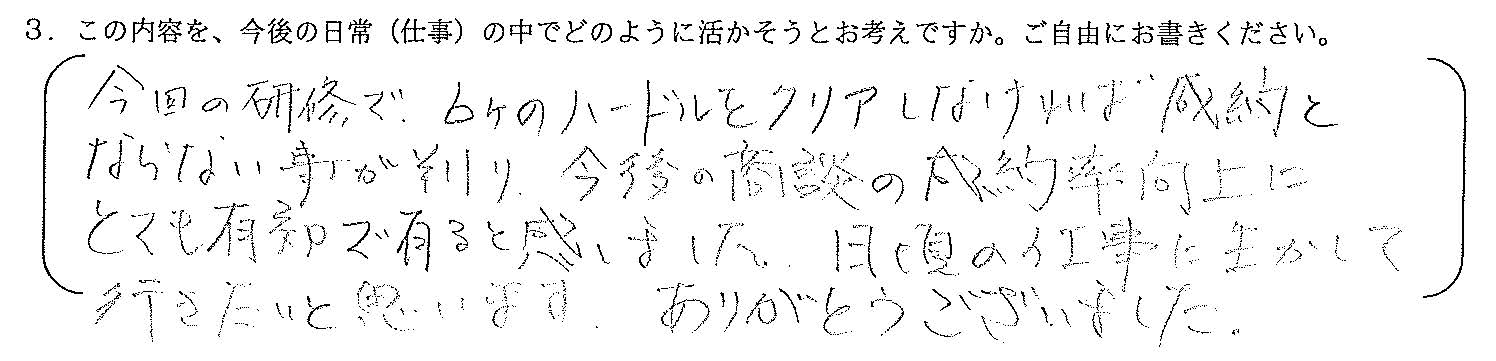 ３．この内容を、今後の日常（仕事）の中でどのように活かそうとお考えですか。ご自由にお書きください。
今回の研修で、6ヶのハードルをクリアしなければ成約と
ならない事が判り、今後の商談の成約率向上に
とても有効で有ると感じました。日頃の仕事に生かして
行きたいと思います。ありがとうございました。